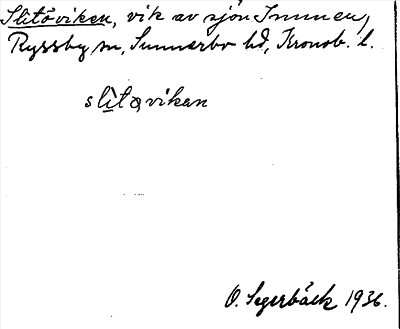 Slitöviken, vik av sjön Immen,
Ryssby sn, Sunnerbo hd, Kronob. l.
slìtǫviken
O. Segerbäck 1936.